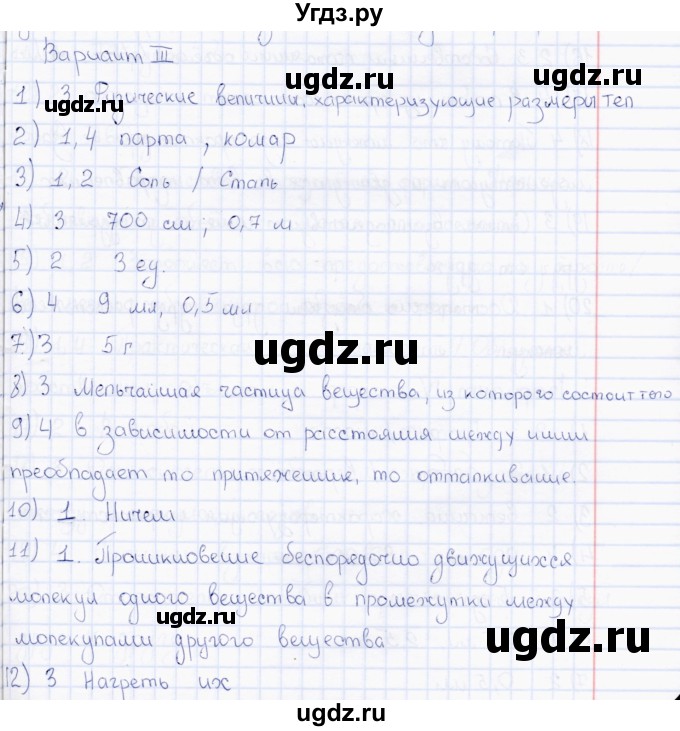 Угдз.ру
Вариант III
ugdz.ru ugdz.ru
1) 3 Физические величины, характеризующие размеры тел
2) 1,4 парта, комар
ugdz.ru ugdz.ru
3) 1,2 Соль / Сталь
4) 3 700 см; 0,7 м
5) 2 3 ед.
6) 4 9 мл, 0,5 мл
ugdz.ru ugdz.ru
7) 3 5 г
8) 3 Мельчайшая частица вещества, из которого состоит тело
9) 4 в зависимости от расстояния между ними
преобладает то притяжение, то отталкивание.
ugdz.ru ugdz.ru
10) 1. Ничем
11) 1. Проникновение беспорядочно движущихся
молекул одного вещества в промежутки между
ugdz.ru ugdz.ru
молекулами другого вещества
12) 3 Нагреть их
ugdz.ru